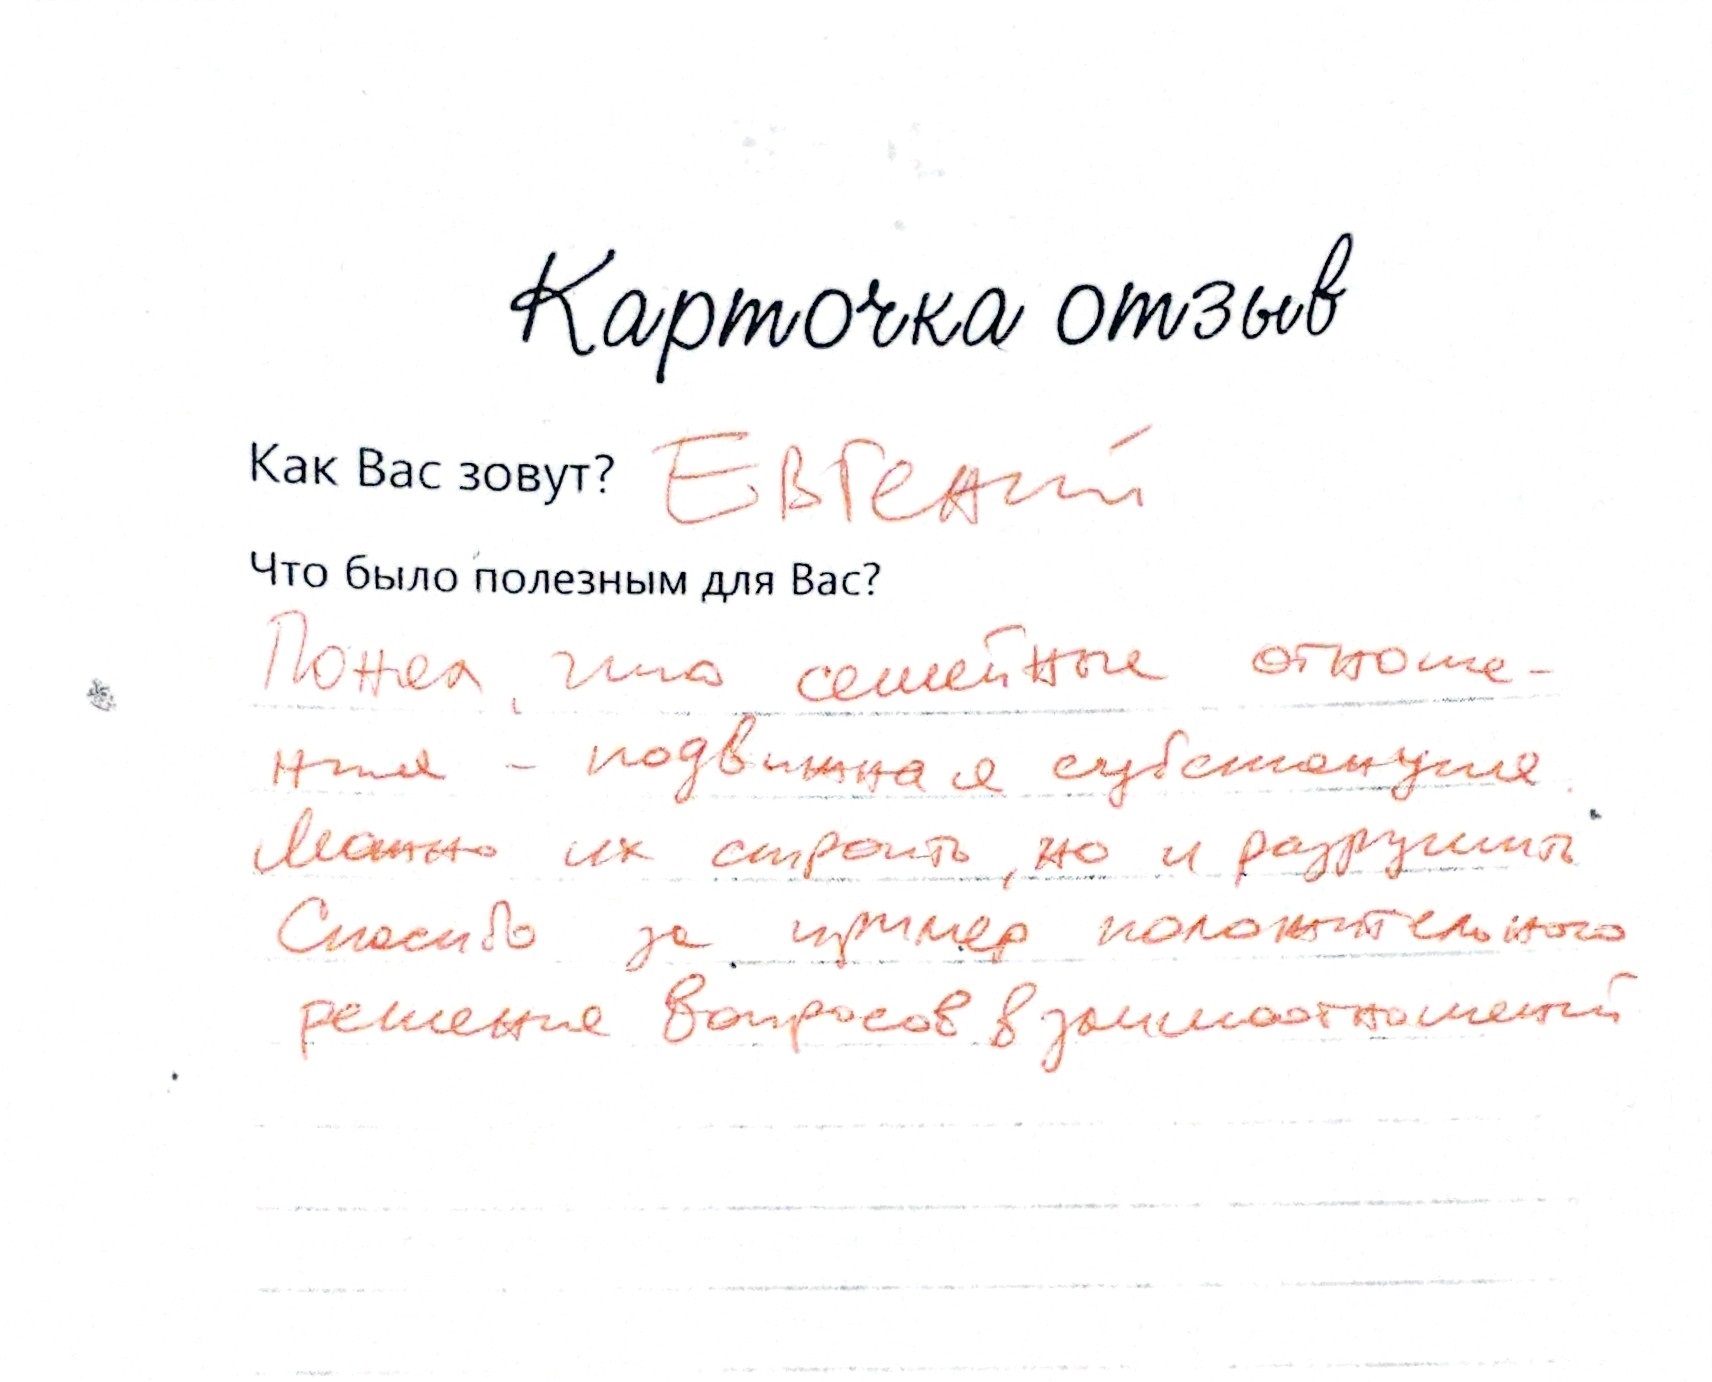 Карточка отзыв
Как Вас зовут? Евгений
Что было полезным для Вас?
Понял, что семейные отноше-
ния - подвижная субстанция.
Можно их строить, но и разрушить
Спасибо за пример положительного
решения вопросов взаимоотношений